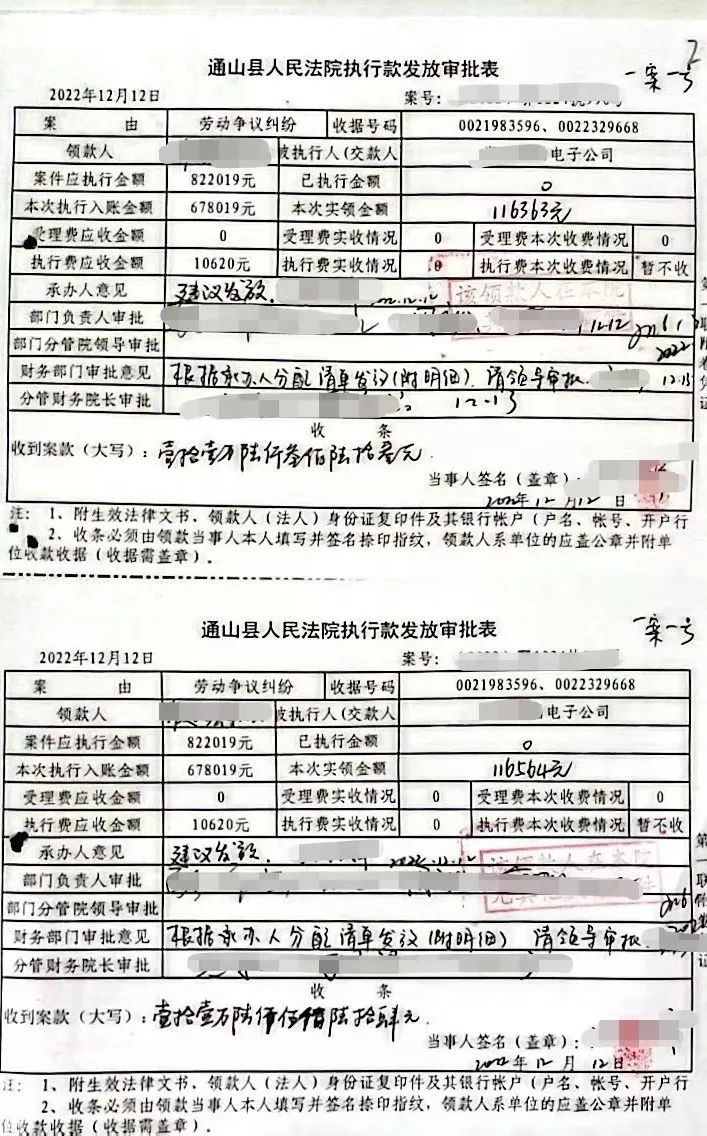 一案一号
通山县人民法院执行款发放审批表
2022年12月12日 案号:
案 由 劳动争议纠纷 收据号码 0021983596、0022329668
领款人 被执行人(交款人 电子公司
案件应执行金额 822019元 已执行金额 0
本次执行入账金额 678019元 本次实领金额 116363元
受理费应收金额 0 受理费实收情况 0 受理费本次收费情况 0
执行费应收金额 10620元 执行费实收情况 0 执行费本次收费情况 暂不收
承办人意见 建议发放. 12.12 该领款人在本院
部门负责人审批 12.12
部门分管院领导审批
财务部门审批意见 根据承办人分配清单发议(附明细). 请领导审批. 12.13
分管财务院长审批 12.13
收 条
收到案款(大写):壹拾壹万陆仟叁佰陆拾叁元
当事人签名(盖章):
2022年12月12日
注: 1、附生效法律文书、领款人(法人)身份证复印件及其银行帐户(户名、帐号、开户行
2、收条必须由领款当事人本人填写并签名捺印指纹,领款人系单位的应盖公章并附单
位收款收据(收据需盖章).
一案一号
通山县人民法院执行款发放审批表
2022年12月12日 案号:
案 由 劳动争议纠纷 收据号码 0021983596、0022329668
领款人 被执行人(交款人 电子公司
案件应执行金额 822019元 已执行金额 0
本次执行入账金额 678019元 本次实领金额 116564元
受理费应收金额 0 受理费实收情况 0 受理费本次收费情况 0
执行费应收金额 10620元 执行费实收情况 0 执行费本次收费情况 暂不收
承办人意见 建议发放. 2022.12.12 该领款人在本院
部门负责人审批
部门分管院领导审批
财务部门审批意见 根据承办人分配清单发议(附明细) 请领导审批.
分管财务院长审批
收 条
收到案款(大写):壹拾壹万陆仟伍佰陆拾肆元
当事人签名(盖章):
2022年12月12日
注: 1、附生效法律文书、领款人(法人)身份证复印件及其银行帐户(户名、帐号、开户行
2、收条必须由领款当事人本人填写并签名捺印指纹,领款人系单位的应盖公章并附单
位收款收据(收据需盖章).